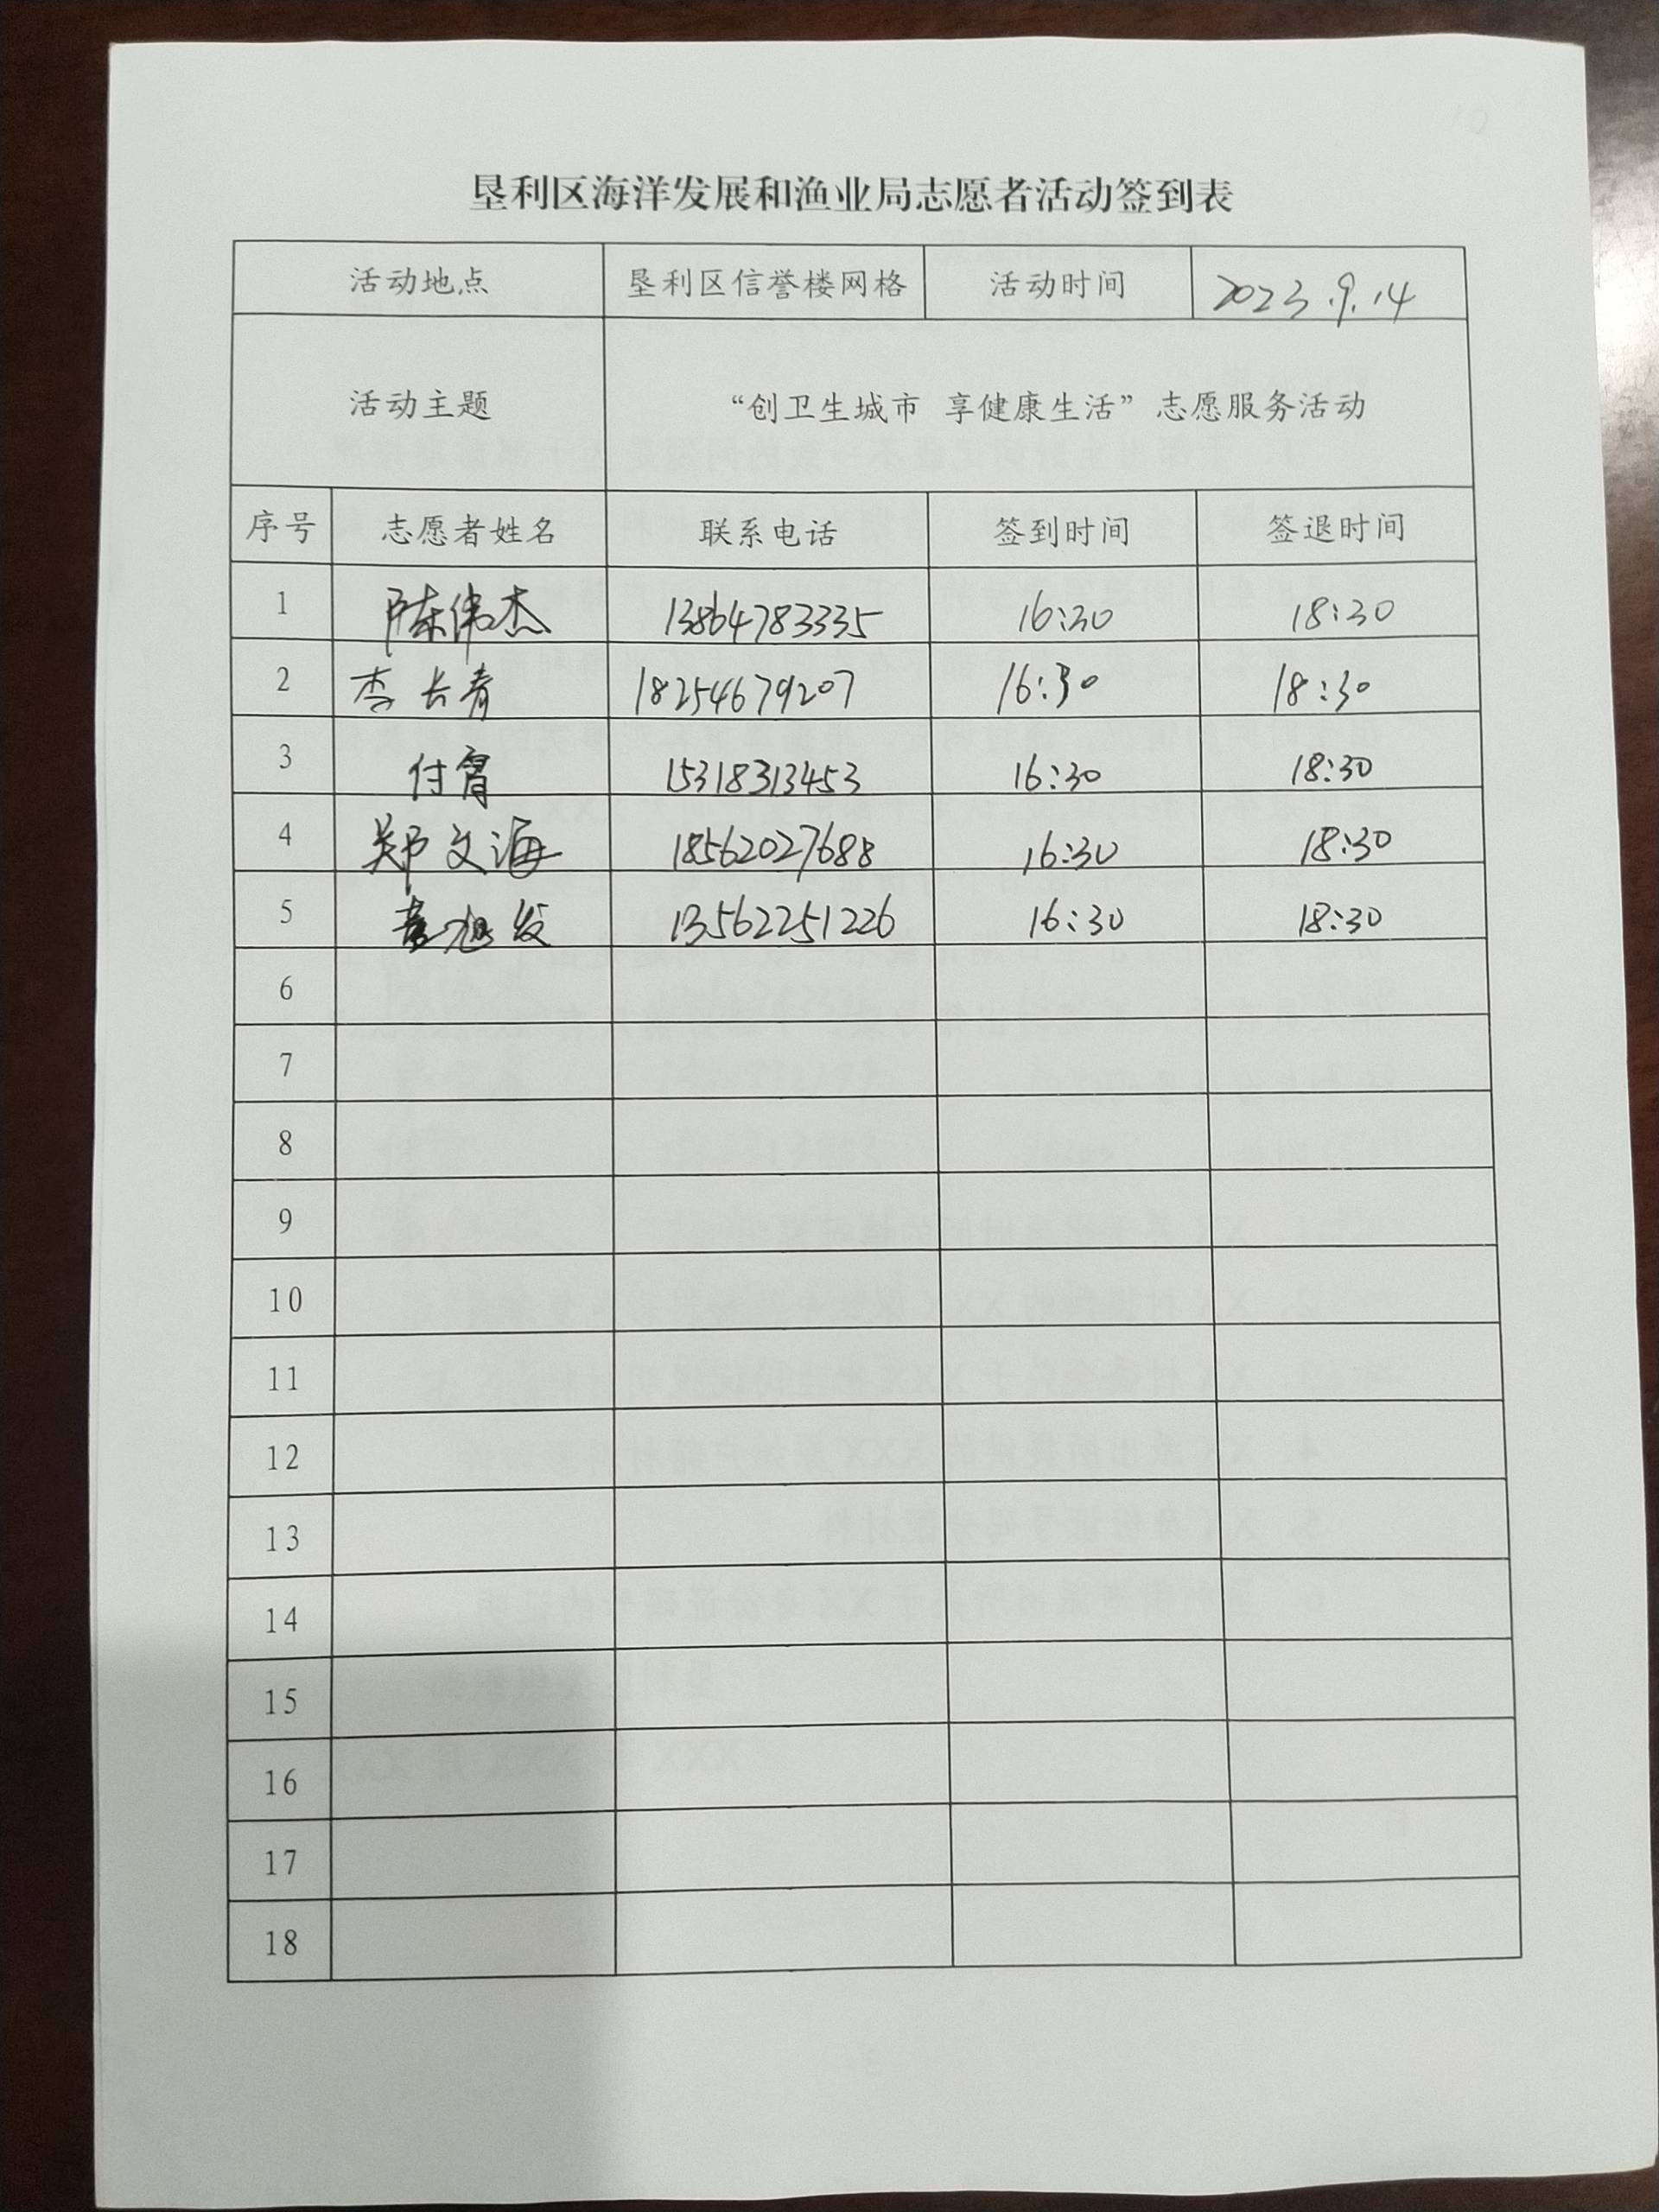 垦利区海洋发展和渔业局志愿者活动签到表
活动地点 垦利区信誉楼网格 活动时间 2023.9.14
活动主题 “创卫生城市 享健康生活”志愿服务活动
序号 志愿者姓名 联系电话 签到时间 签退时间
1 陈伟杰 13864783335 16:30 18:30
2 李长青 18254679207 16:30 18:30
3 付霄 15318313453 16:30 18:30
4 郑文海 18562027688 16:30 18:30
5 旭发 13562251226 16:30 18:30
6
7
8
9
10
11
12
13
14
15
16
17
18